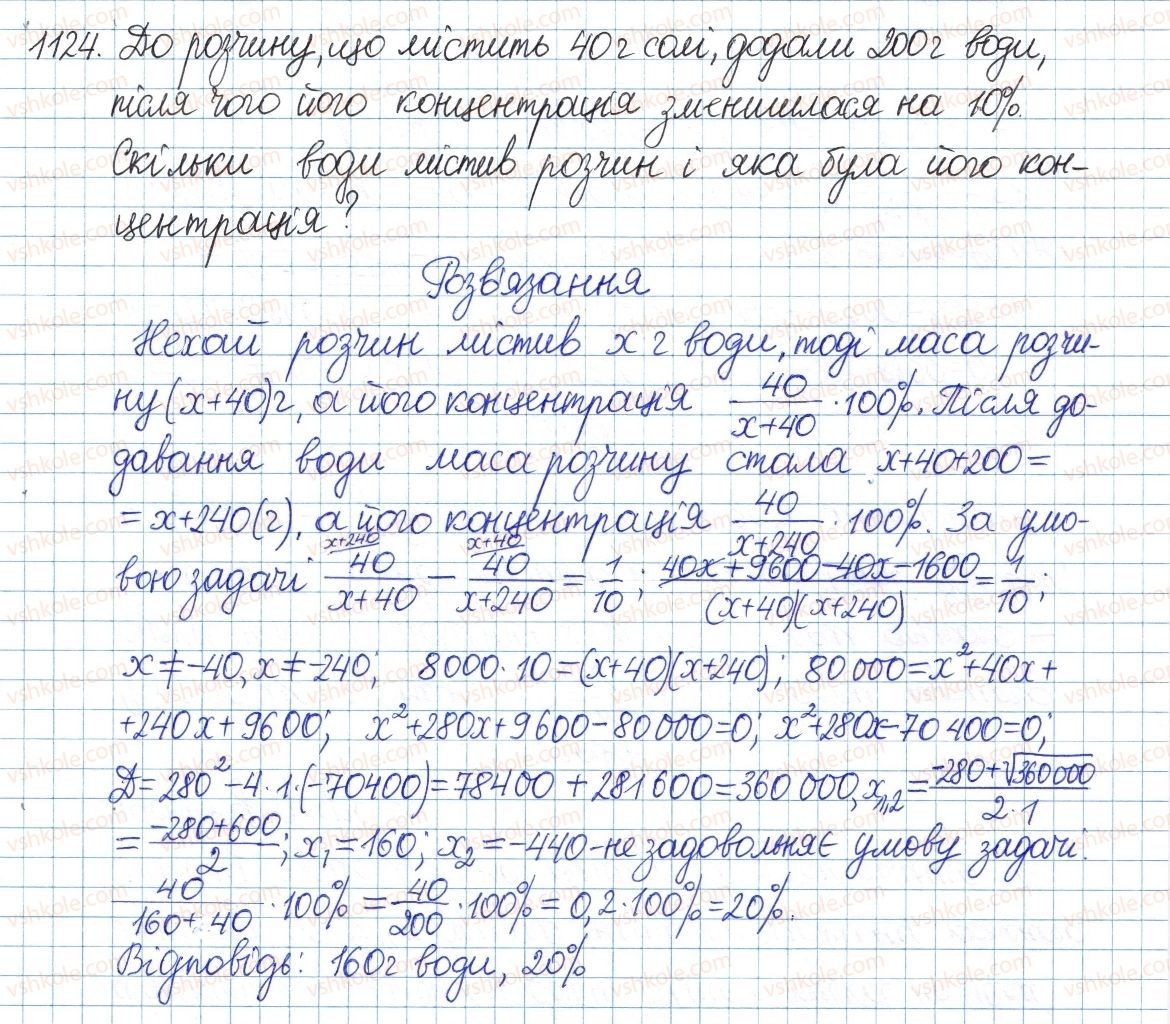 1124. До розчину, що містить 40 г солі, додали 200 г води,
після чого його концентрація зменшилася на 10%.
Скільки води містив розчин і яка була його кон-
центрація?
Розв'язання
Нехай розчин містив x г води, тоді маса розчи-
ну (x+40)г, а його концентрація 40/(x+40) · 100%. Після до-
давання води маса розчину стала x+40+200=
= x+240(г), а його концентрація 40/(x+240) · 100%. За умо-
вою задачі x+240/ 40/(x+40) − x+40/ 40/(x+240) = 1/10; (40x+9600−40x−1600)/((x+40)(x+240)) = 1/10;
x≠−40, x≠−240; 8000·10=(x+40)(x+240); 80000=x²+40x+
+240x+9600; x²+280x+9600−80000=0; x²+280x−70400=0;
D=280²−4·1·(−70400)=78400+281600=360000, x₁,₂=(−280+√360000)/(2·1)
=(−280+600)/2; x₁=160; x₂=−440-не задовольняє умову задачі.
40/(160+40) · 100% = 40/200 · 100% = 0,2·100%=20%.
Відповідь: 160г води, 20%